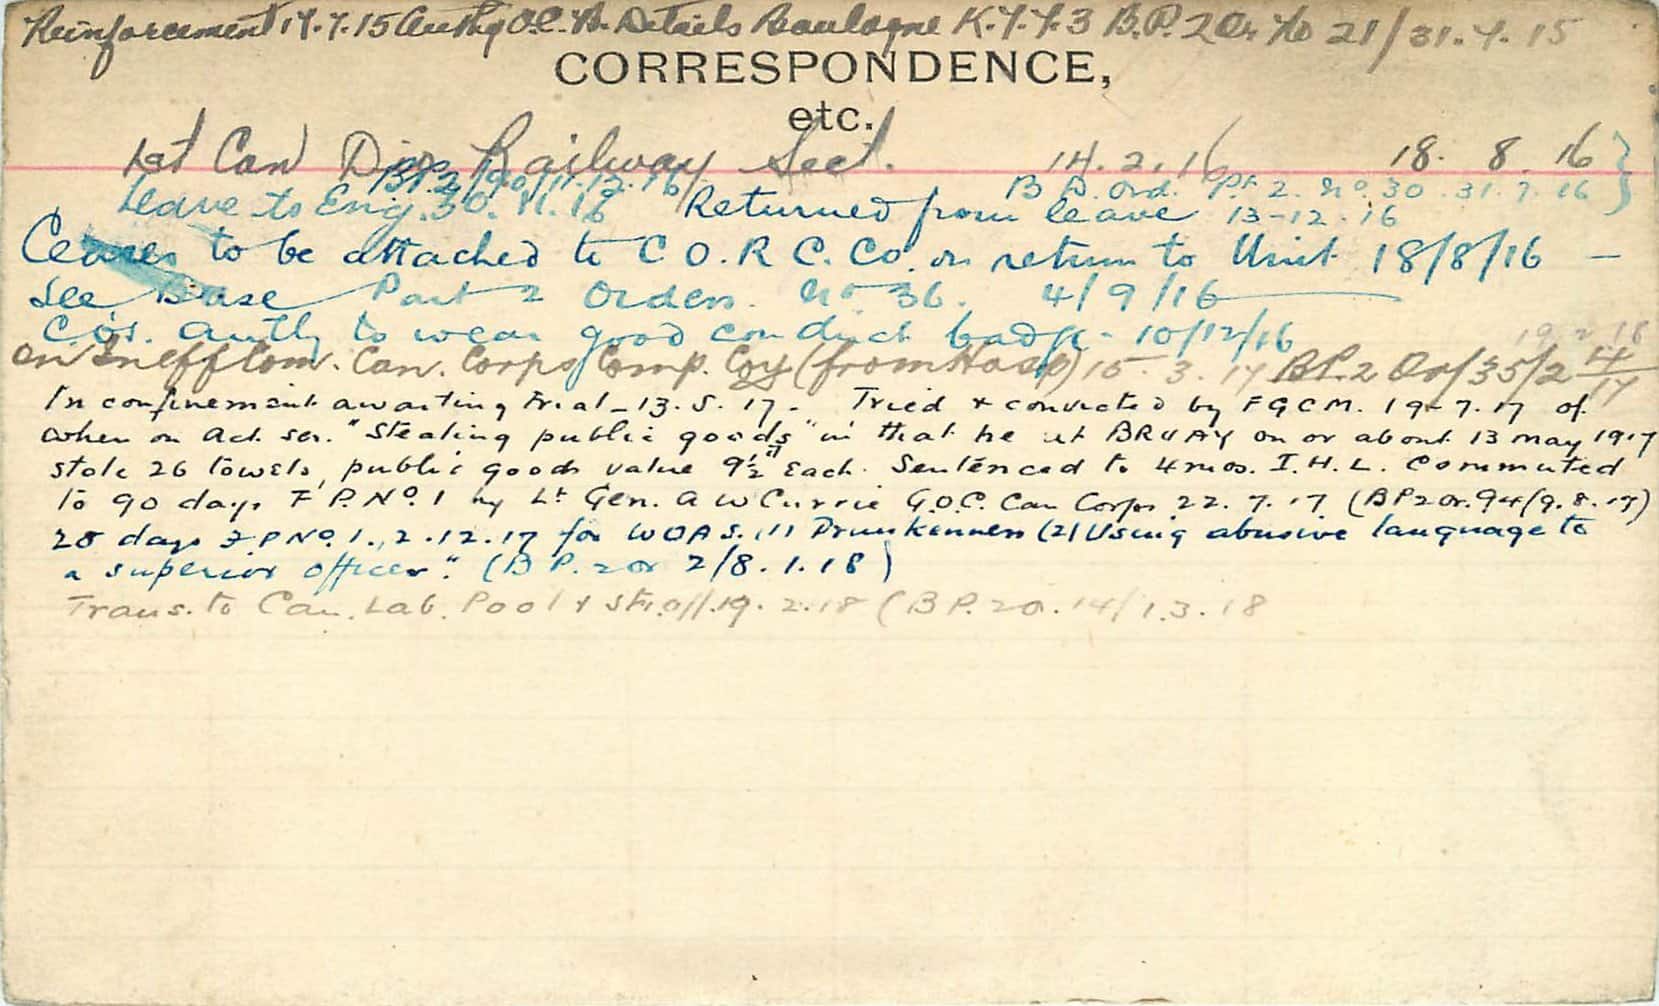 Reinforcement 17.7.15 Authy O.C. Details Boulogne K.7.7.3 B.P.2 Or No 21/31.7.15
CORRESPONDENCE,
etc.
1st Can Div Railway Sect. 14.2.16 18.8.16
B.P.2/90/11.12.16 B P. Ord. Pt. 2. No. 30. 31.7.16
Leave to Eng. 30.11.16 Returned from leave 13-12.16
Ceases to be attached to C O.R C. Co. on return to Unit 18/8/16 —
See Base Part 2 Orders. No 36. 4/9/16
C.O's. Authy to wear good conduct badge - 10/12/16
19 2 18
on Ineff Com. Can. Corps Comp. Coy (from Hosp) 15-3.17 B.P.2 Or/35/2 4/17
In confinement awaiting trial - 13.5.17. Tried & convicted by FGCM. 19-7.17 of
when on act. ser. "Stealing public goods" in that he at BRUAY on or about 13 may 1917
stole 26 towels, public goods value 9½d Each. Sentenced to 4 mos. I.H.L. Commuted
to 90 days F.P. No. 1 by Lt Gen. A W Currie G.O.C. Can Corps 22.7.17 (BP2 Or.94/9.8.17)
28 days F P No. 1., 2.12.17 for WOAS. (1) Drunkenness (2) Using abusive language to
a superior officer". (B P. 2 or 2/8.1.18)
Trans. to Can. Lab. Pool & St. off. 19.2.18 (B P. 2 O. 14/1.3.18